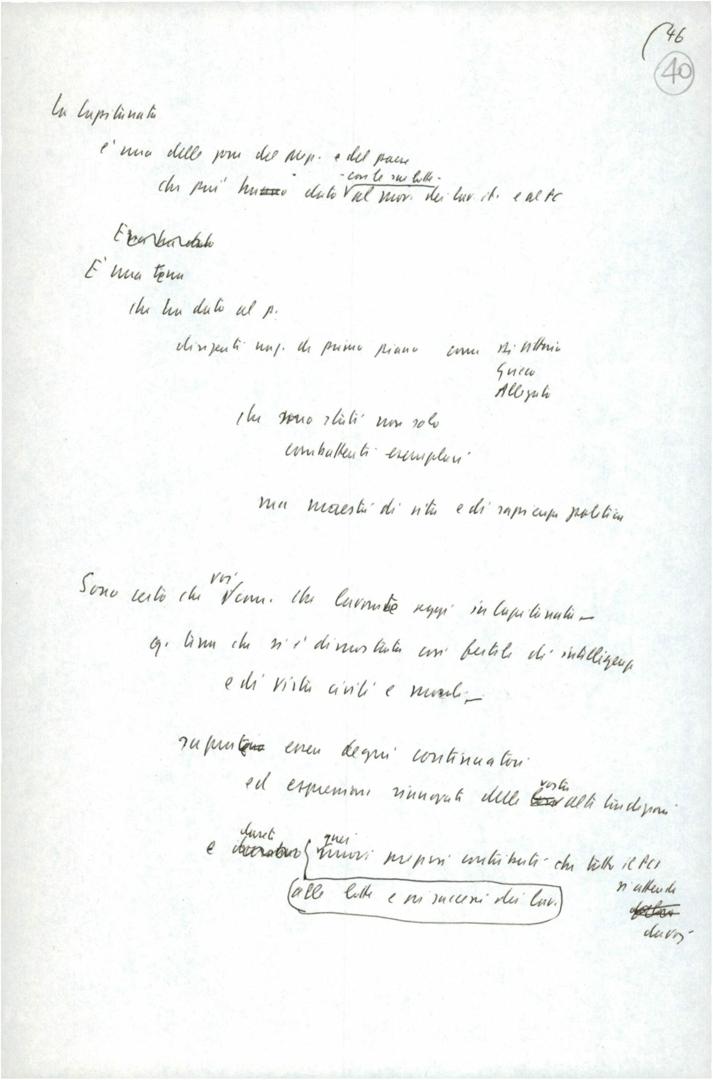 46
40
La Capitanata
è una delle zone del Mezz. e del paese
con le sue lotte
che più ha dato al mov. dei lav. it. e al PC
È una terra
che ha dato al p.
dirigenti naz. di primo piano come Di Vittorio
Grieco
Allegato
che sono stati non solo
combattenti esemplari
ma maestri di vita e di sapienza politica
voi
Sono certo che com. che lavorate oggi in Capitanata –
q. terra che si è dimostrata così fertile di intelligenza
e di virtù civili e morali –
saprete esser degni continuatori
vostre
ed espressione rinnovata delle alte tradizioni
darete quei
e nuovi preziosi contributi che tutto il PCI
si attende
alle lotte e ai successi dei lav.
da voi